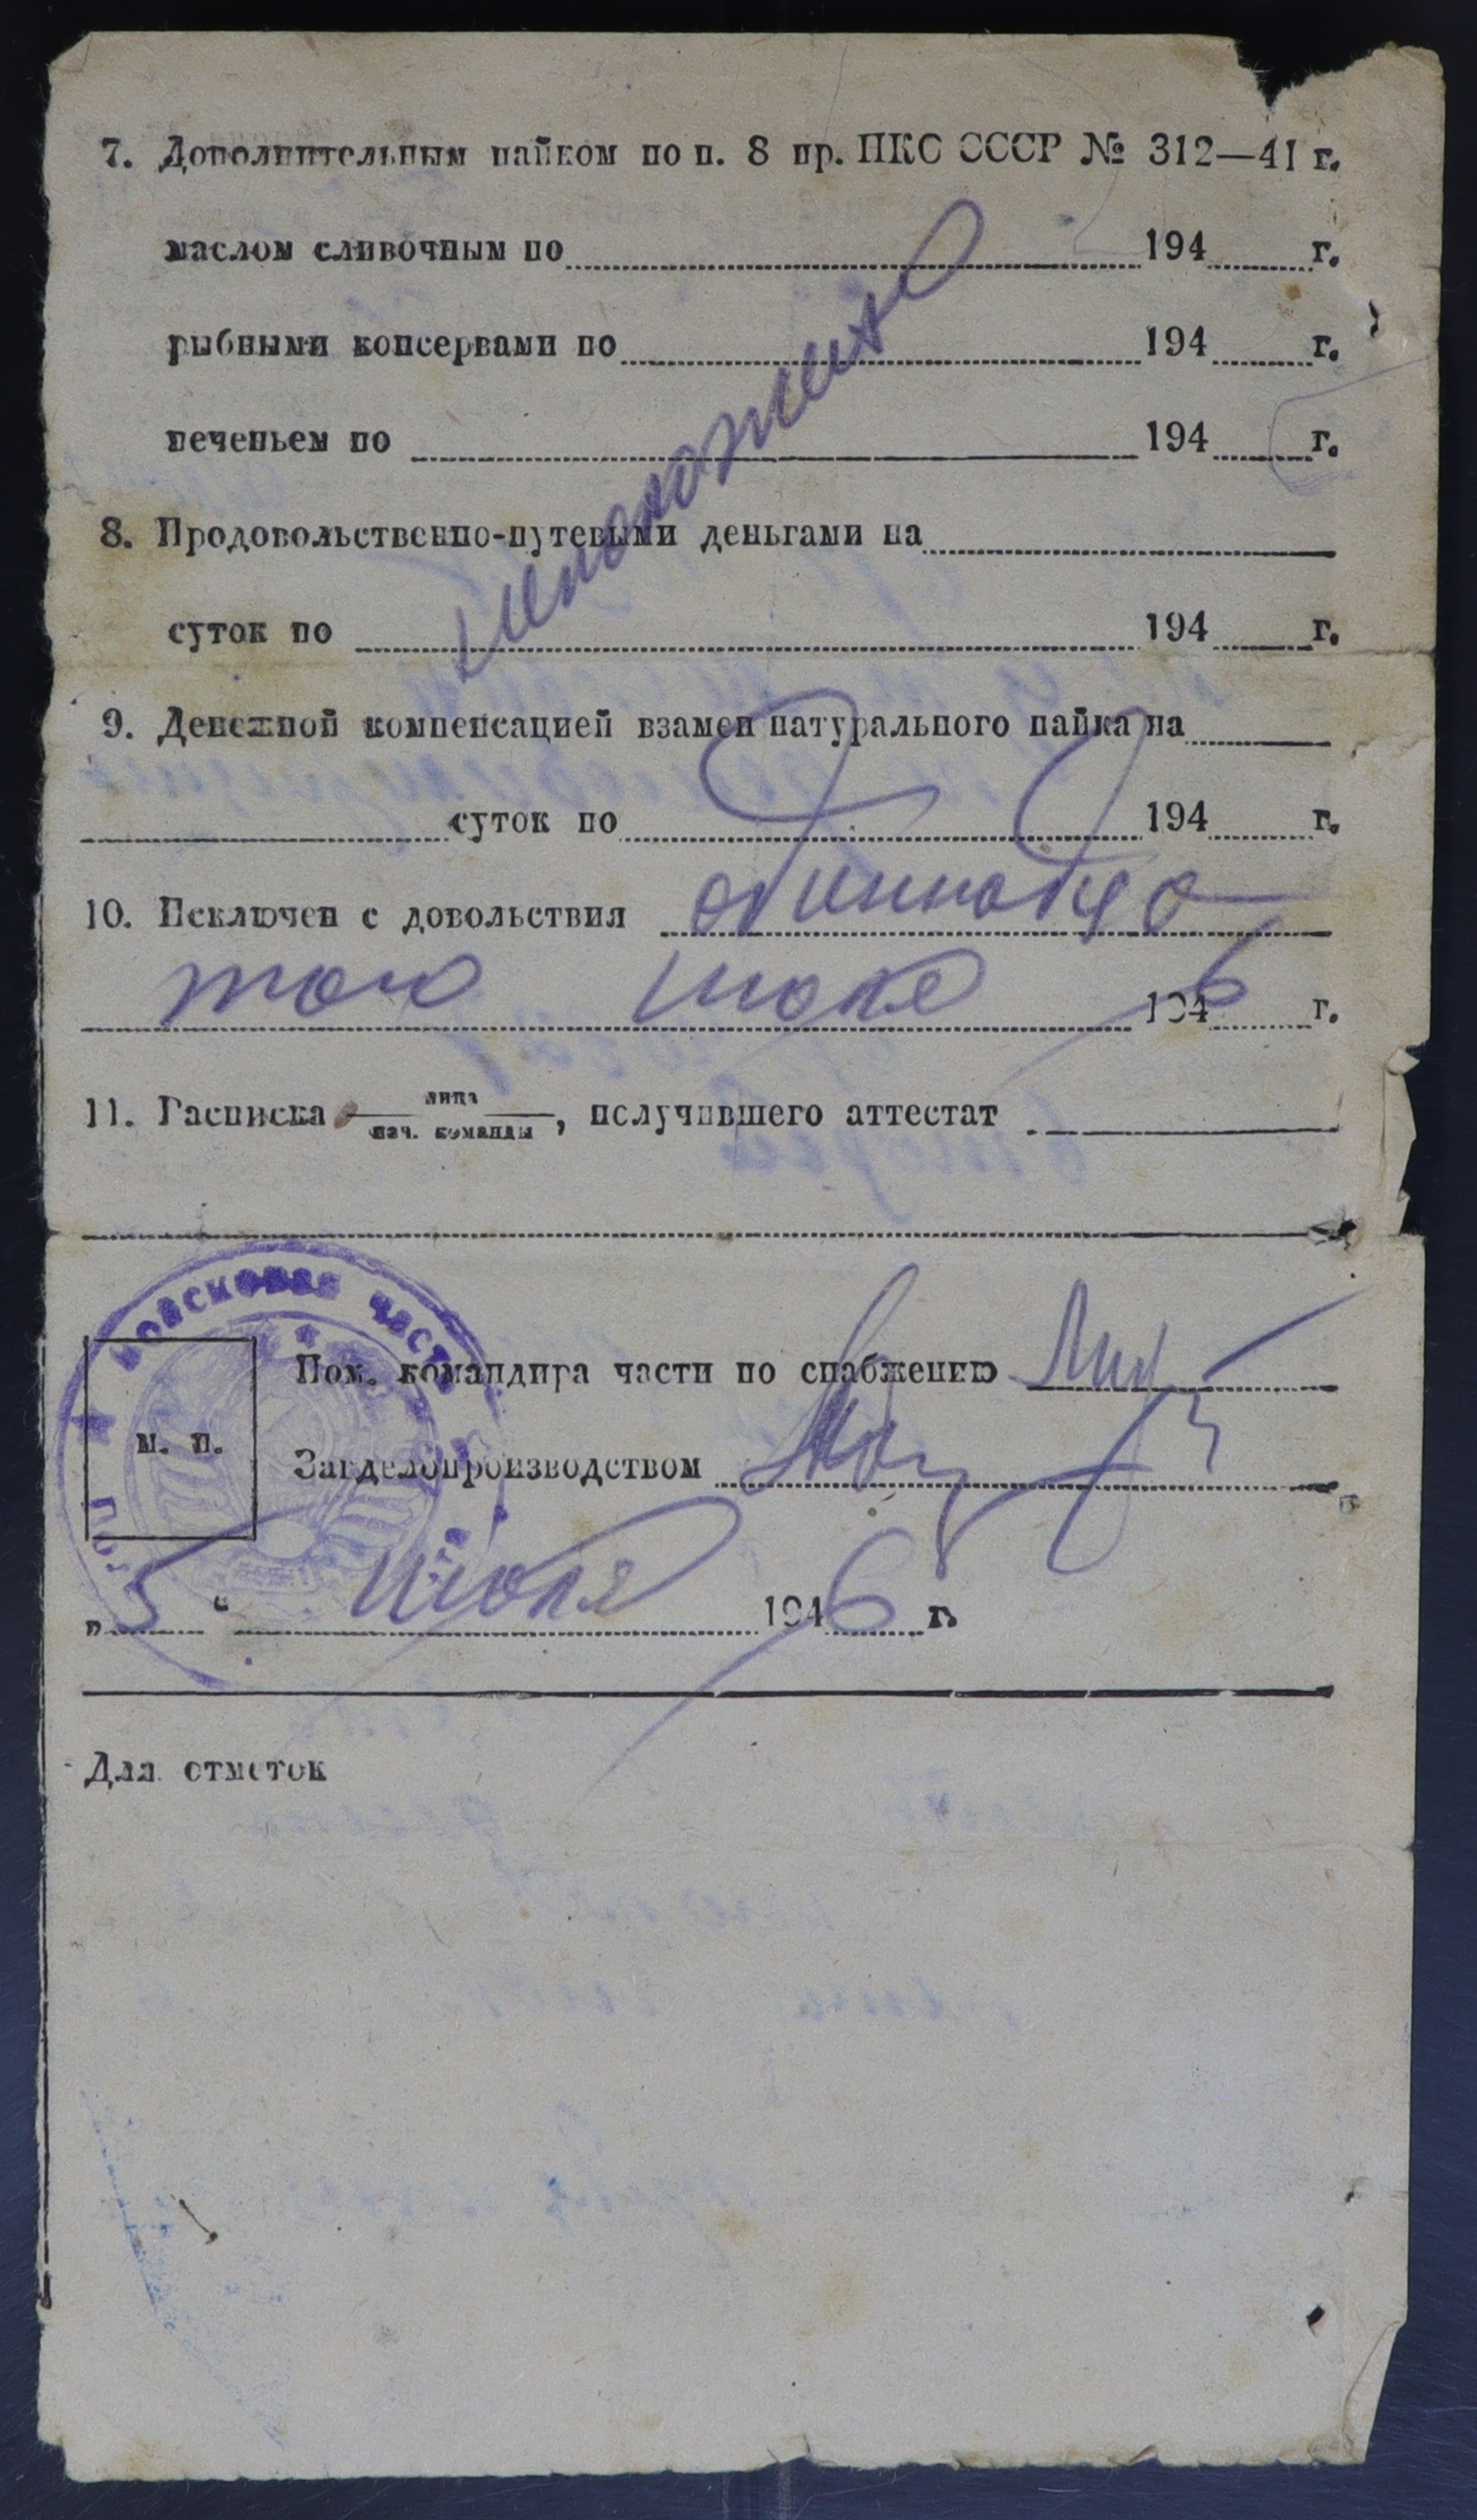 7. Дополнительным пайком по п. 8 пр. НКО СССР № 312—41 г.
маслом сливочным по 194 г.
рыбными консервами по 194 г.
печеньем по 194 г.
8. Продовольственно-путевыми деньгами на
суток по 194 г.
9. Денежной компенсацией взамен натурального пайка на
суток по 194 г.
10. Исключен с довольствия одиннадца
того июля 1946 г.
11. Расписка лица
нач. команды, получившего аттестат
войсковая часть
Пом. командира части по снабжению
м. п.
Завделопроизводством
„5“ июля 1946 г.
Для отметок